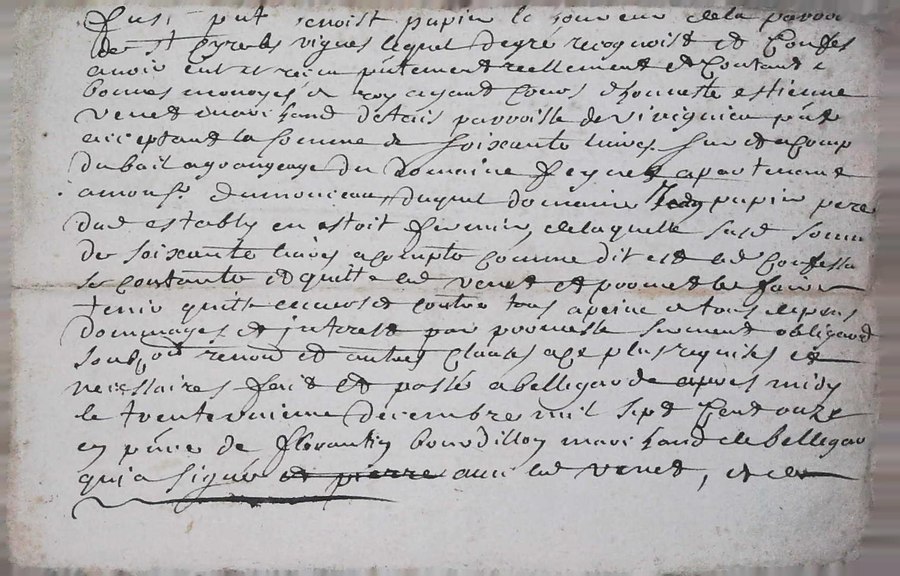 fust pnt benoist papin le jeune de la parroi
de St Cyre les vignes lequel de gré recognoist et Confes
avoir eut et receu pntement reellement et Contant e
bonnes monoyes de roy ayant Cours d'honneste estienne
venet marchand d parroisse de pnt
acceptant la somme de soixante livres sur et a Comp
du bail a grangeage du Domaine apartenant
a monsr dumonceau duquel domaine Jean papin pere
dud estably en estoit fermier, de laquelle susd somm
de soixante livres a compte comme dit est led Confessa
se contante et quitte led venet et promet le faire
tenir quitte envers et contre tous a peine de tous despens
dommages et interest par promesse serment obligaon
soub, on renon et autres Clauses a ce plus requises et
necessaires fait et passé a bellegarde apres midy
le trente uniesme decembre mil sept Cent onze
en pnce de florantin bourdillon marchand de bellegar
qui a signé et pierre avec led venet, et led